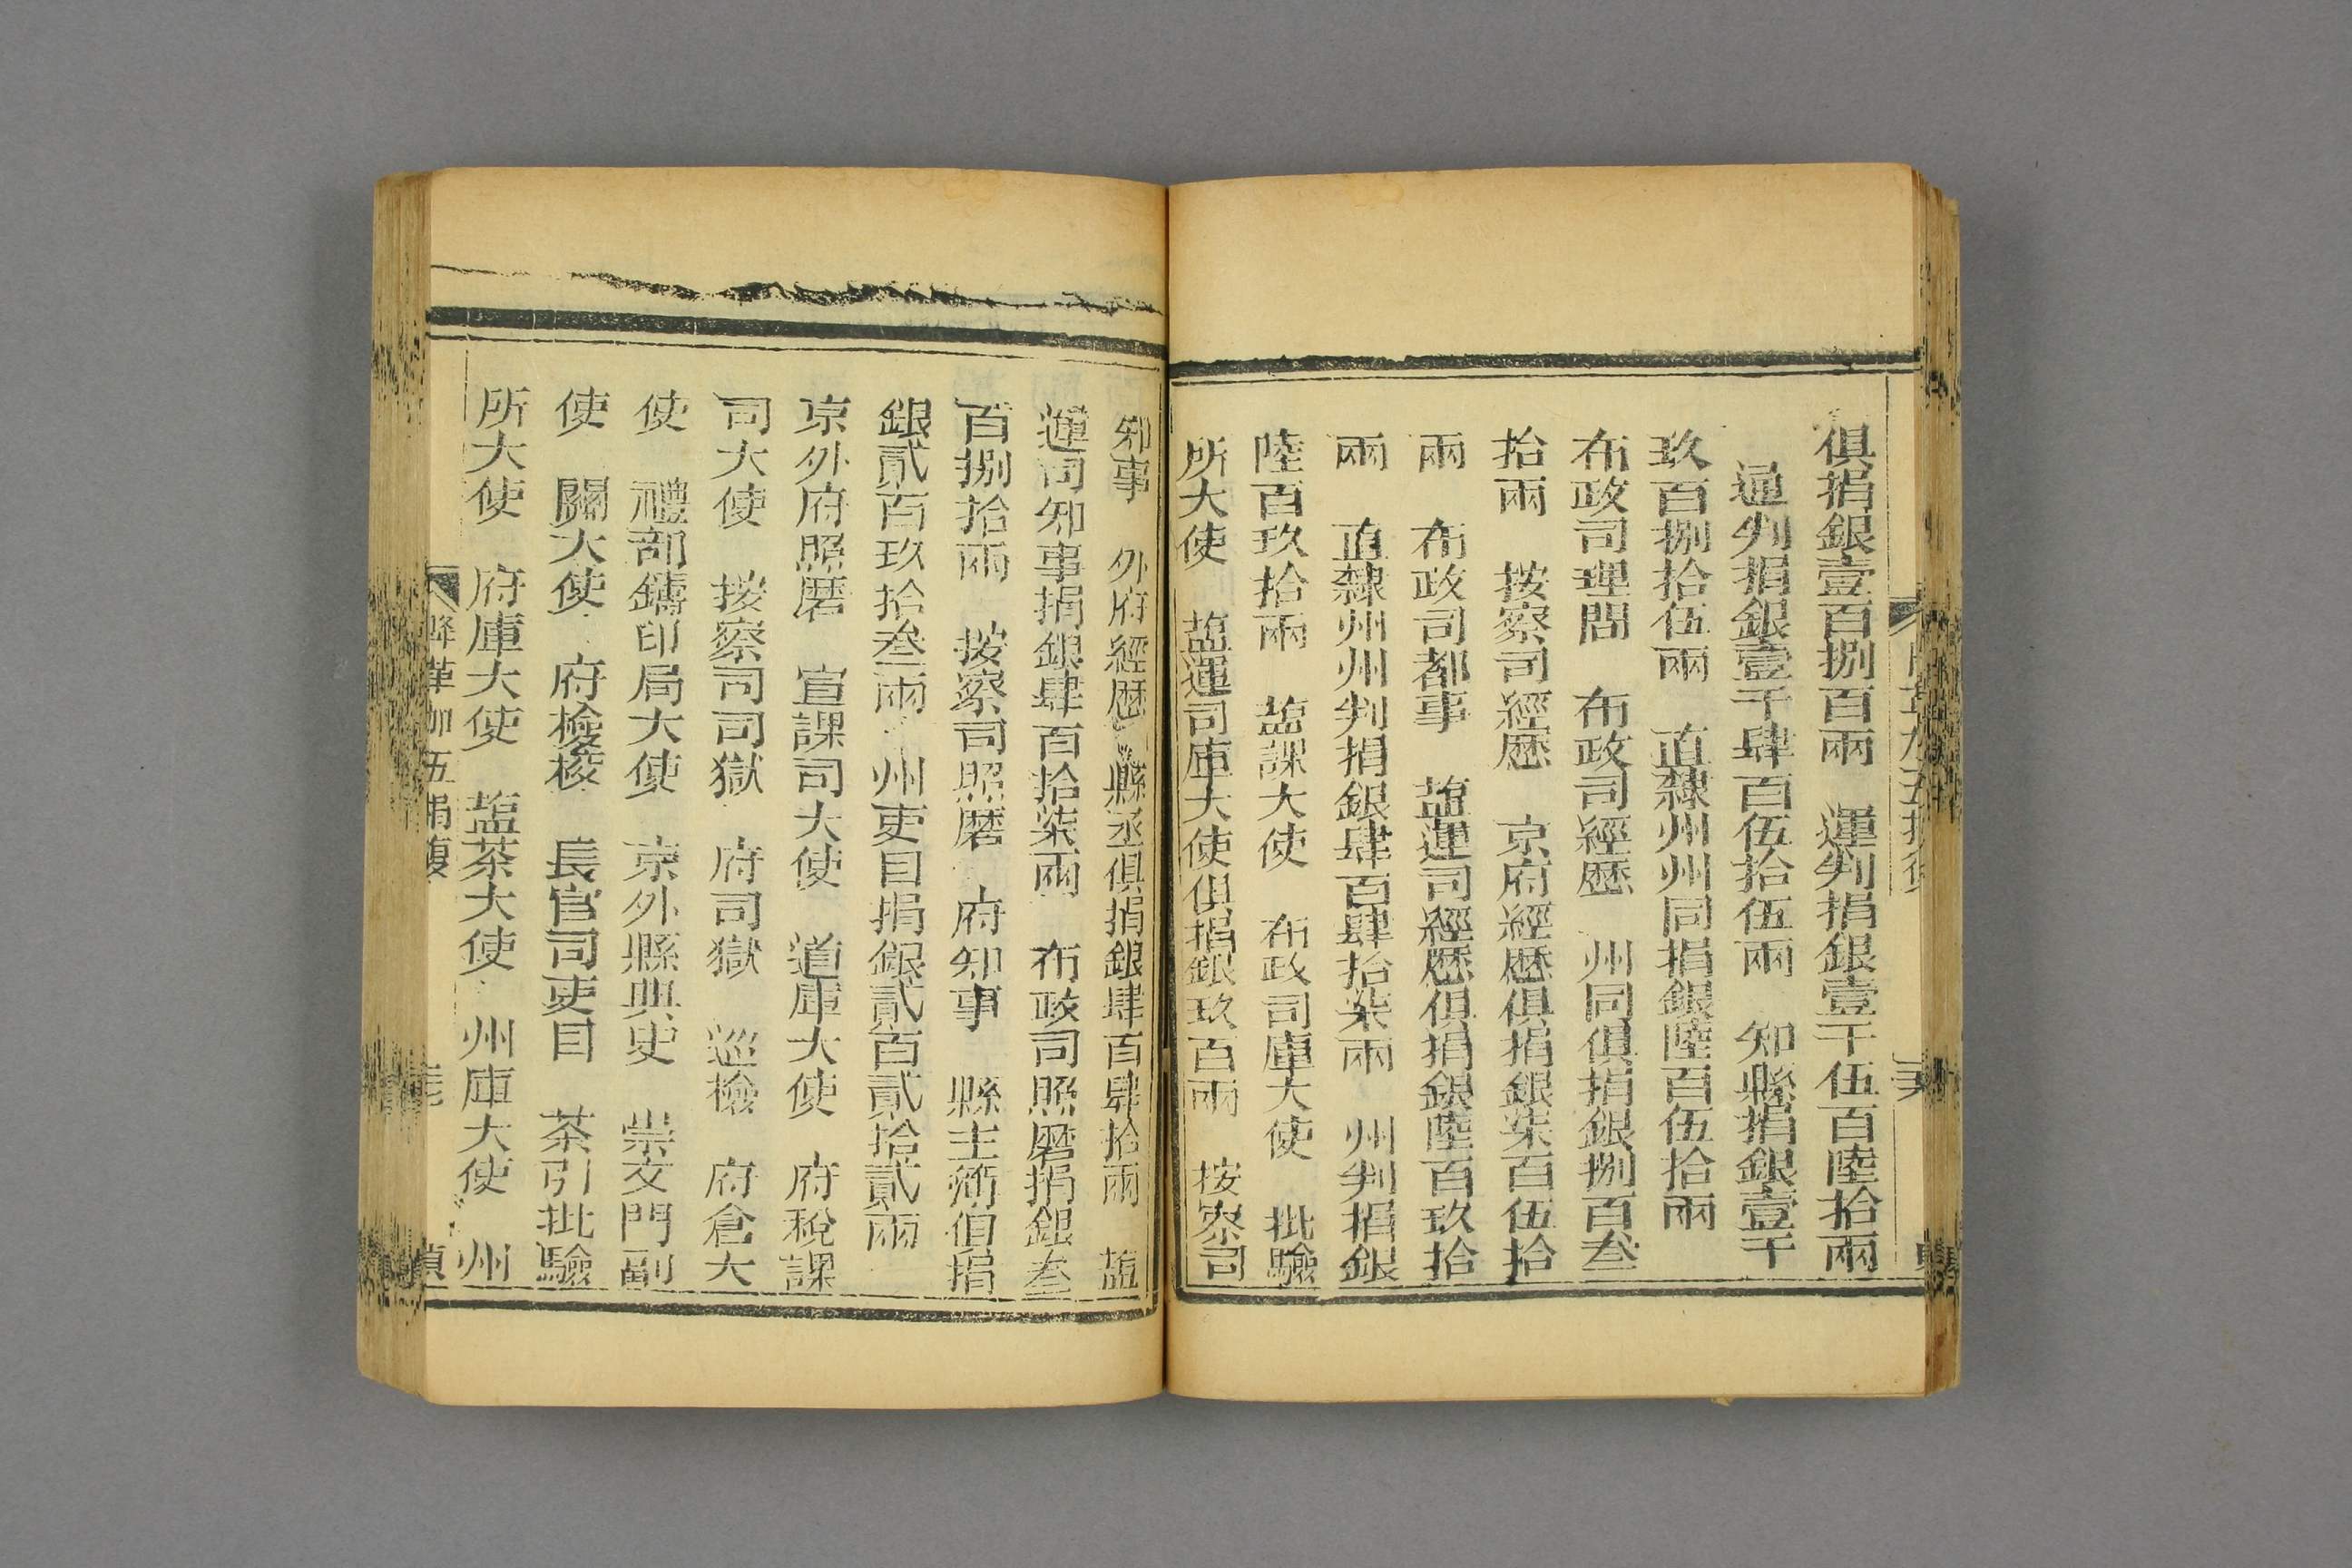 俱捐銀壹百捌百兩　運判捐銀壹千伍百陸拾兩
通判捐銀壹千肆百伍拾伍兩　知縣捐銀壹千
玖百捌拾伍兩　直隸州州同捐銀陸百伍拾兩
布政司理問　布政司經歷　州同俱捐銀捌百叁
拾兩　按察司經歷　京府經歷俱捐銀柒百伍拾
兩　布政司都事　塩運司經歷俱捐銀陸百玖拾
兩　直隸州州判捐銀肆百肆拾柒兩　州判捐銀
陸百玖拾兩　塩課大使　布政司庫大使　批驗
所大使　塩運司庫大使俱捐銀玖百兩　按察司
知事　外府經歷　縣丞俱捐銀肆百肆拾兩　塩
運司知事捐銀肆百拾柒兩　布政司照磨捐銀叁
百捌拾兩　按察司照磨　府知事　縣主簿俱捐
銀貳百玖拾叁兩　州吏目捐銀貳百貳拾貳兩
京外府照磨　宣課司大使　道庫大使　府稅課
司大使　按察司司獄　府司獄　巡檢　府倉大
使　禮部鑄印局大使　京外縣典史　崇文門副
使　關大使　府檢校　長官司吏目　茶引批驗
所大使　府庫大使　塩茶大使　州庫大使　州
降革　五捐復